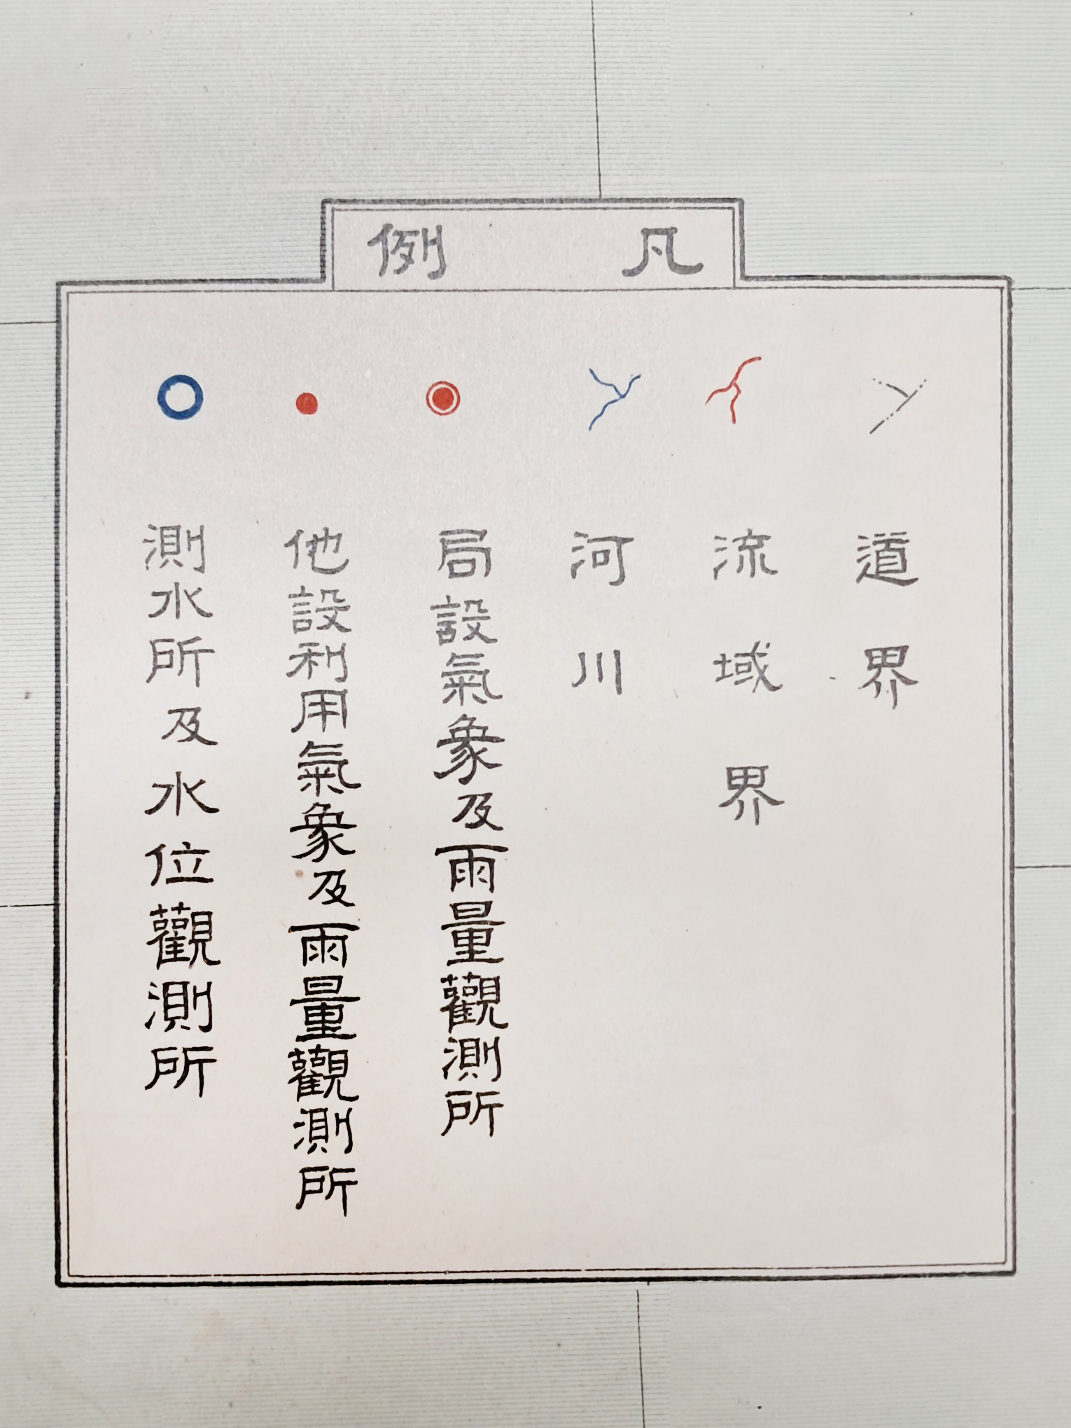 凡例
道界
流域界
河川
局設氣象及雨量觀測所
他設利用氣象及雨量觀測所
測水所及水位觀測所